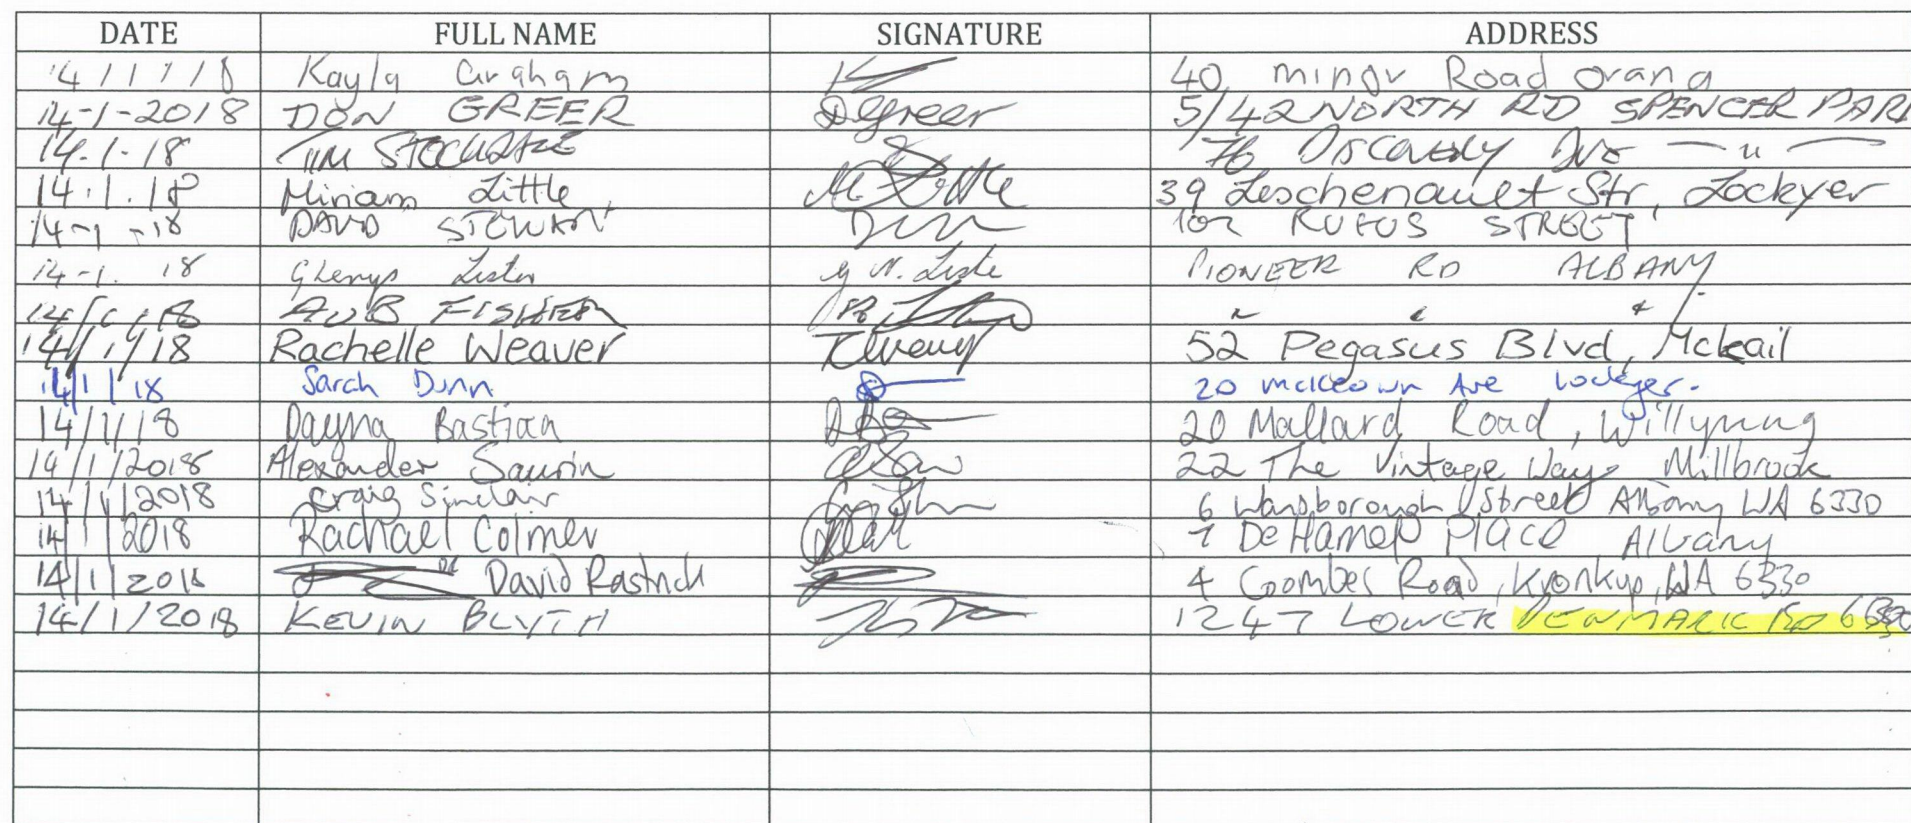 DATE FULL NAME SIGNATURE ADDRESS
14/1/18 Kayla Graham 40 Road Orana
14-1-2018 DON GREER DGreer 5/42 NORTH RD SPENCER PARK
14.1.18 TIM 76 Discovery Dve — " —
14.1.18 Miriam Little M Little 39 Leschenault Str, Lockyer
14-1-18 DAVID STEWART 102 RUFUS STREET
14-1. 18 Glenys Lister g N. Liste PIONEER RD ALBANY
14/1/18 AUB FISHER " " "
14/1/18 Rachelle Weaver 52 Pegasus Blvd, Mckail
14/1/18 Sarah Dunn 20 mckeown Ave lockyer.
14/1/18 Dayna Bastian 20 Mallard Road, Willyung
14/1/2018 Alexander Saurin 22 The Vintage Way, Millbrook
14/1/2018 Craig Sinclair 6 Wansborough Street Albany WA 6330
14/1/2018 Rachael Colmer 7 De Hamel Place Albany
14/1/2018 David Rastrick 4 Coombes Road, Kronkup, WA 6330
14/1/2018 KEVIN BLYTH 1247 LOWER DENMARK RD 6330